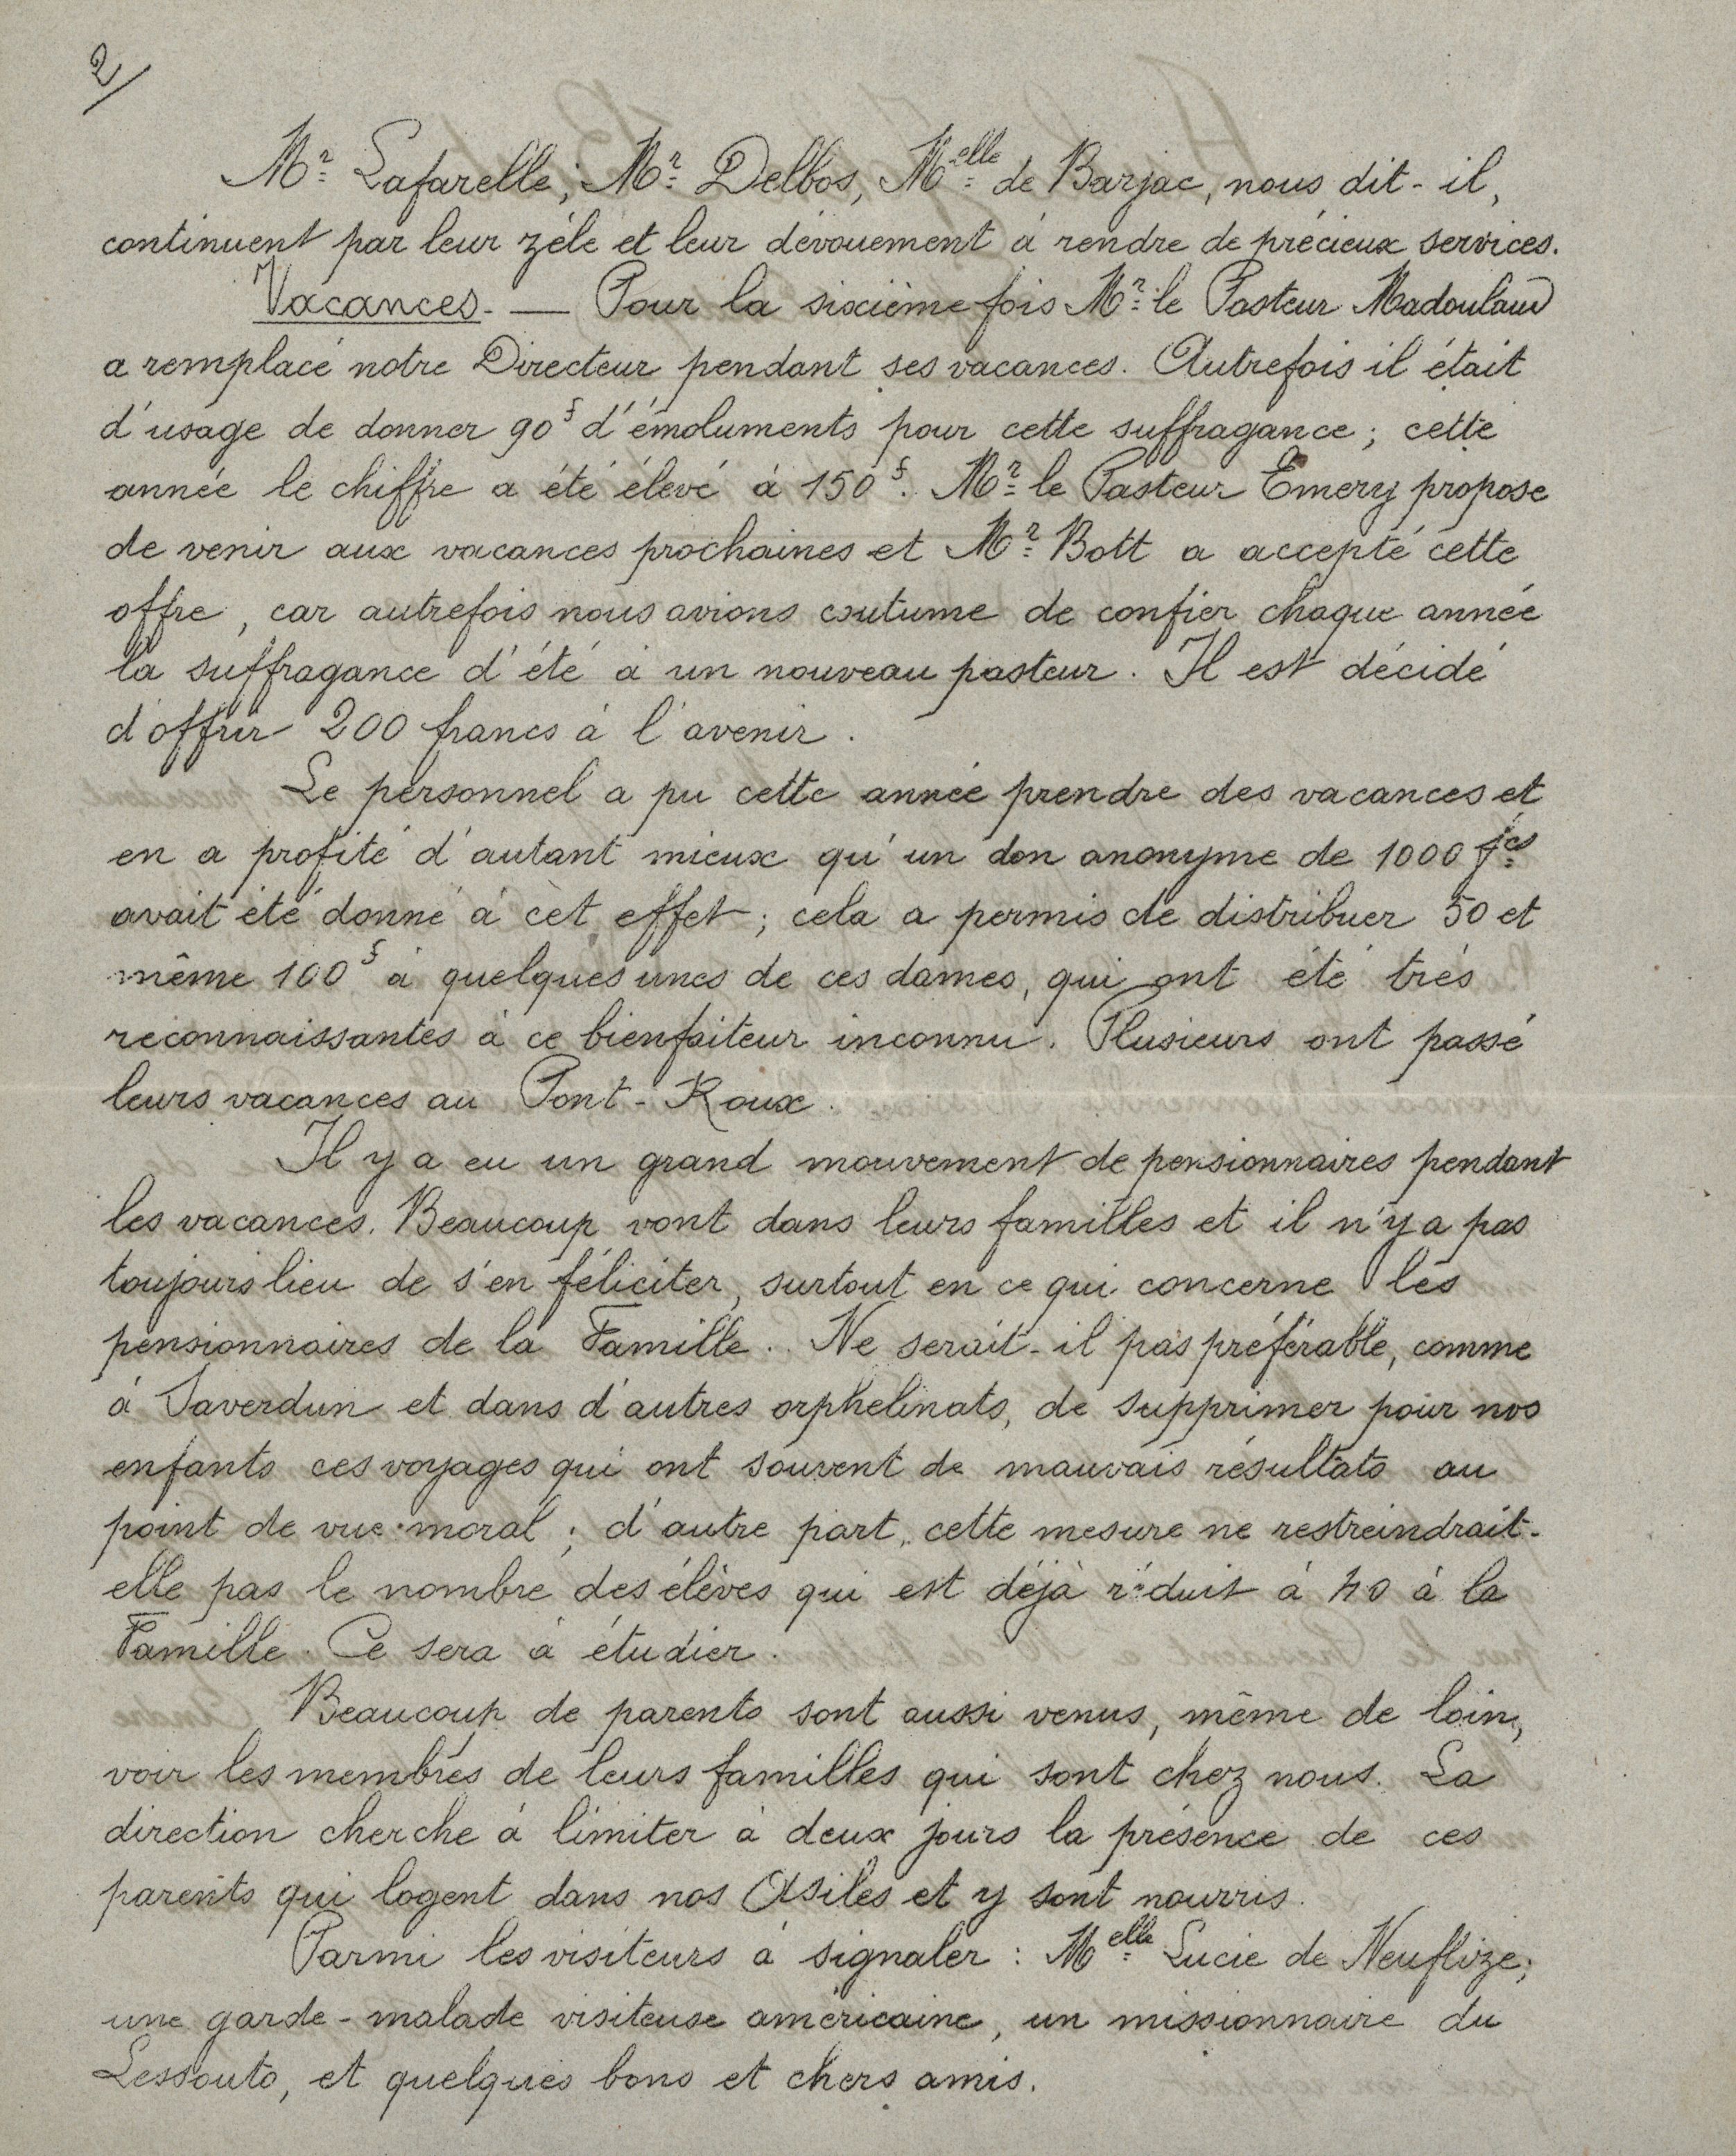 2/
Mr. Lafarelle; Mr. Delbos, Melle de Barjac, nous dit-il,
continuent par leur zèle et leur dévouement à rendre de précieux services.
Vacances. — Pour la sixième fois Mr. le Pasteur Madoulaud
a remplacé notre Directeur pendant ses vacances. Autrefois il était
d'usage de donner 90f d'émoluments pour cette suffragance; cette
année le chiffre a été élevé à 150f. Mr. le Pasteur Emery propose
de venir aux vacances prochaines et Mr. Bott a accepté cette
offre, car autrefois nous avions coutume de confier chaque année
la suffragance d'été à un nouveau pasteur. Il est décidé
d'offrir 200 francs à l'avenir.
Le personnel a pu cette année prendre des vacances et
en a profité d'autant mieux qu'un don anonyme de 1000 fcs
avait été donné à cet effet; cela a permis de distribuer 50 et
même 100f à quelques unes de ces dames, qui ont été très
reconnaissantes à ce bienfaiteur inconnu. Plusieurs ont passé
leurs vacances au Pont-Roux.
Il y a eu un grand mouvement de pensionnaires pendant
les vacances. Beaucoup vont dans leurs familles et il n'y a pas
toujours lieu de s'en féliciter, surtout en ce qui concerne les
pensionnaires de la Famille. Ne serait-il pas préférable, comme
à Saverdun et dans d'autres orphelinats, de supprimer pour nos
enfants ces voyages qui ont souvent de mauvais résultats au
point de vue moral; d'autre part, cette mesure ne restreindrait-
elle pas le nombre des élèves qui est déjà réduit à 40 à la
Famille. Ce sera à étudier.
Beaucoup de parents sont aussi venus, même de loin,
voir les membres de leurs familles qui sont chez nous. La
direction cherche à limiter à deux jours la présence de ces
parents qui logent dans nos Asiles et y sont nourris.
Parmi les visiteurs à signaler : Melle Lucie de Neuflize;
une garde-malade visiteuse américaine, un missionnaire du
Lessouto, et quelques bons et chers amis.